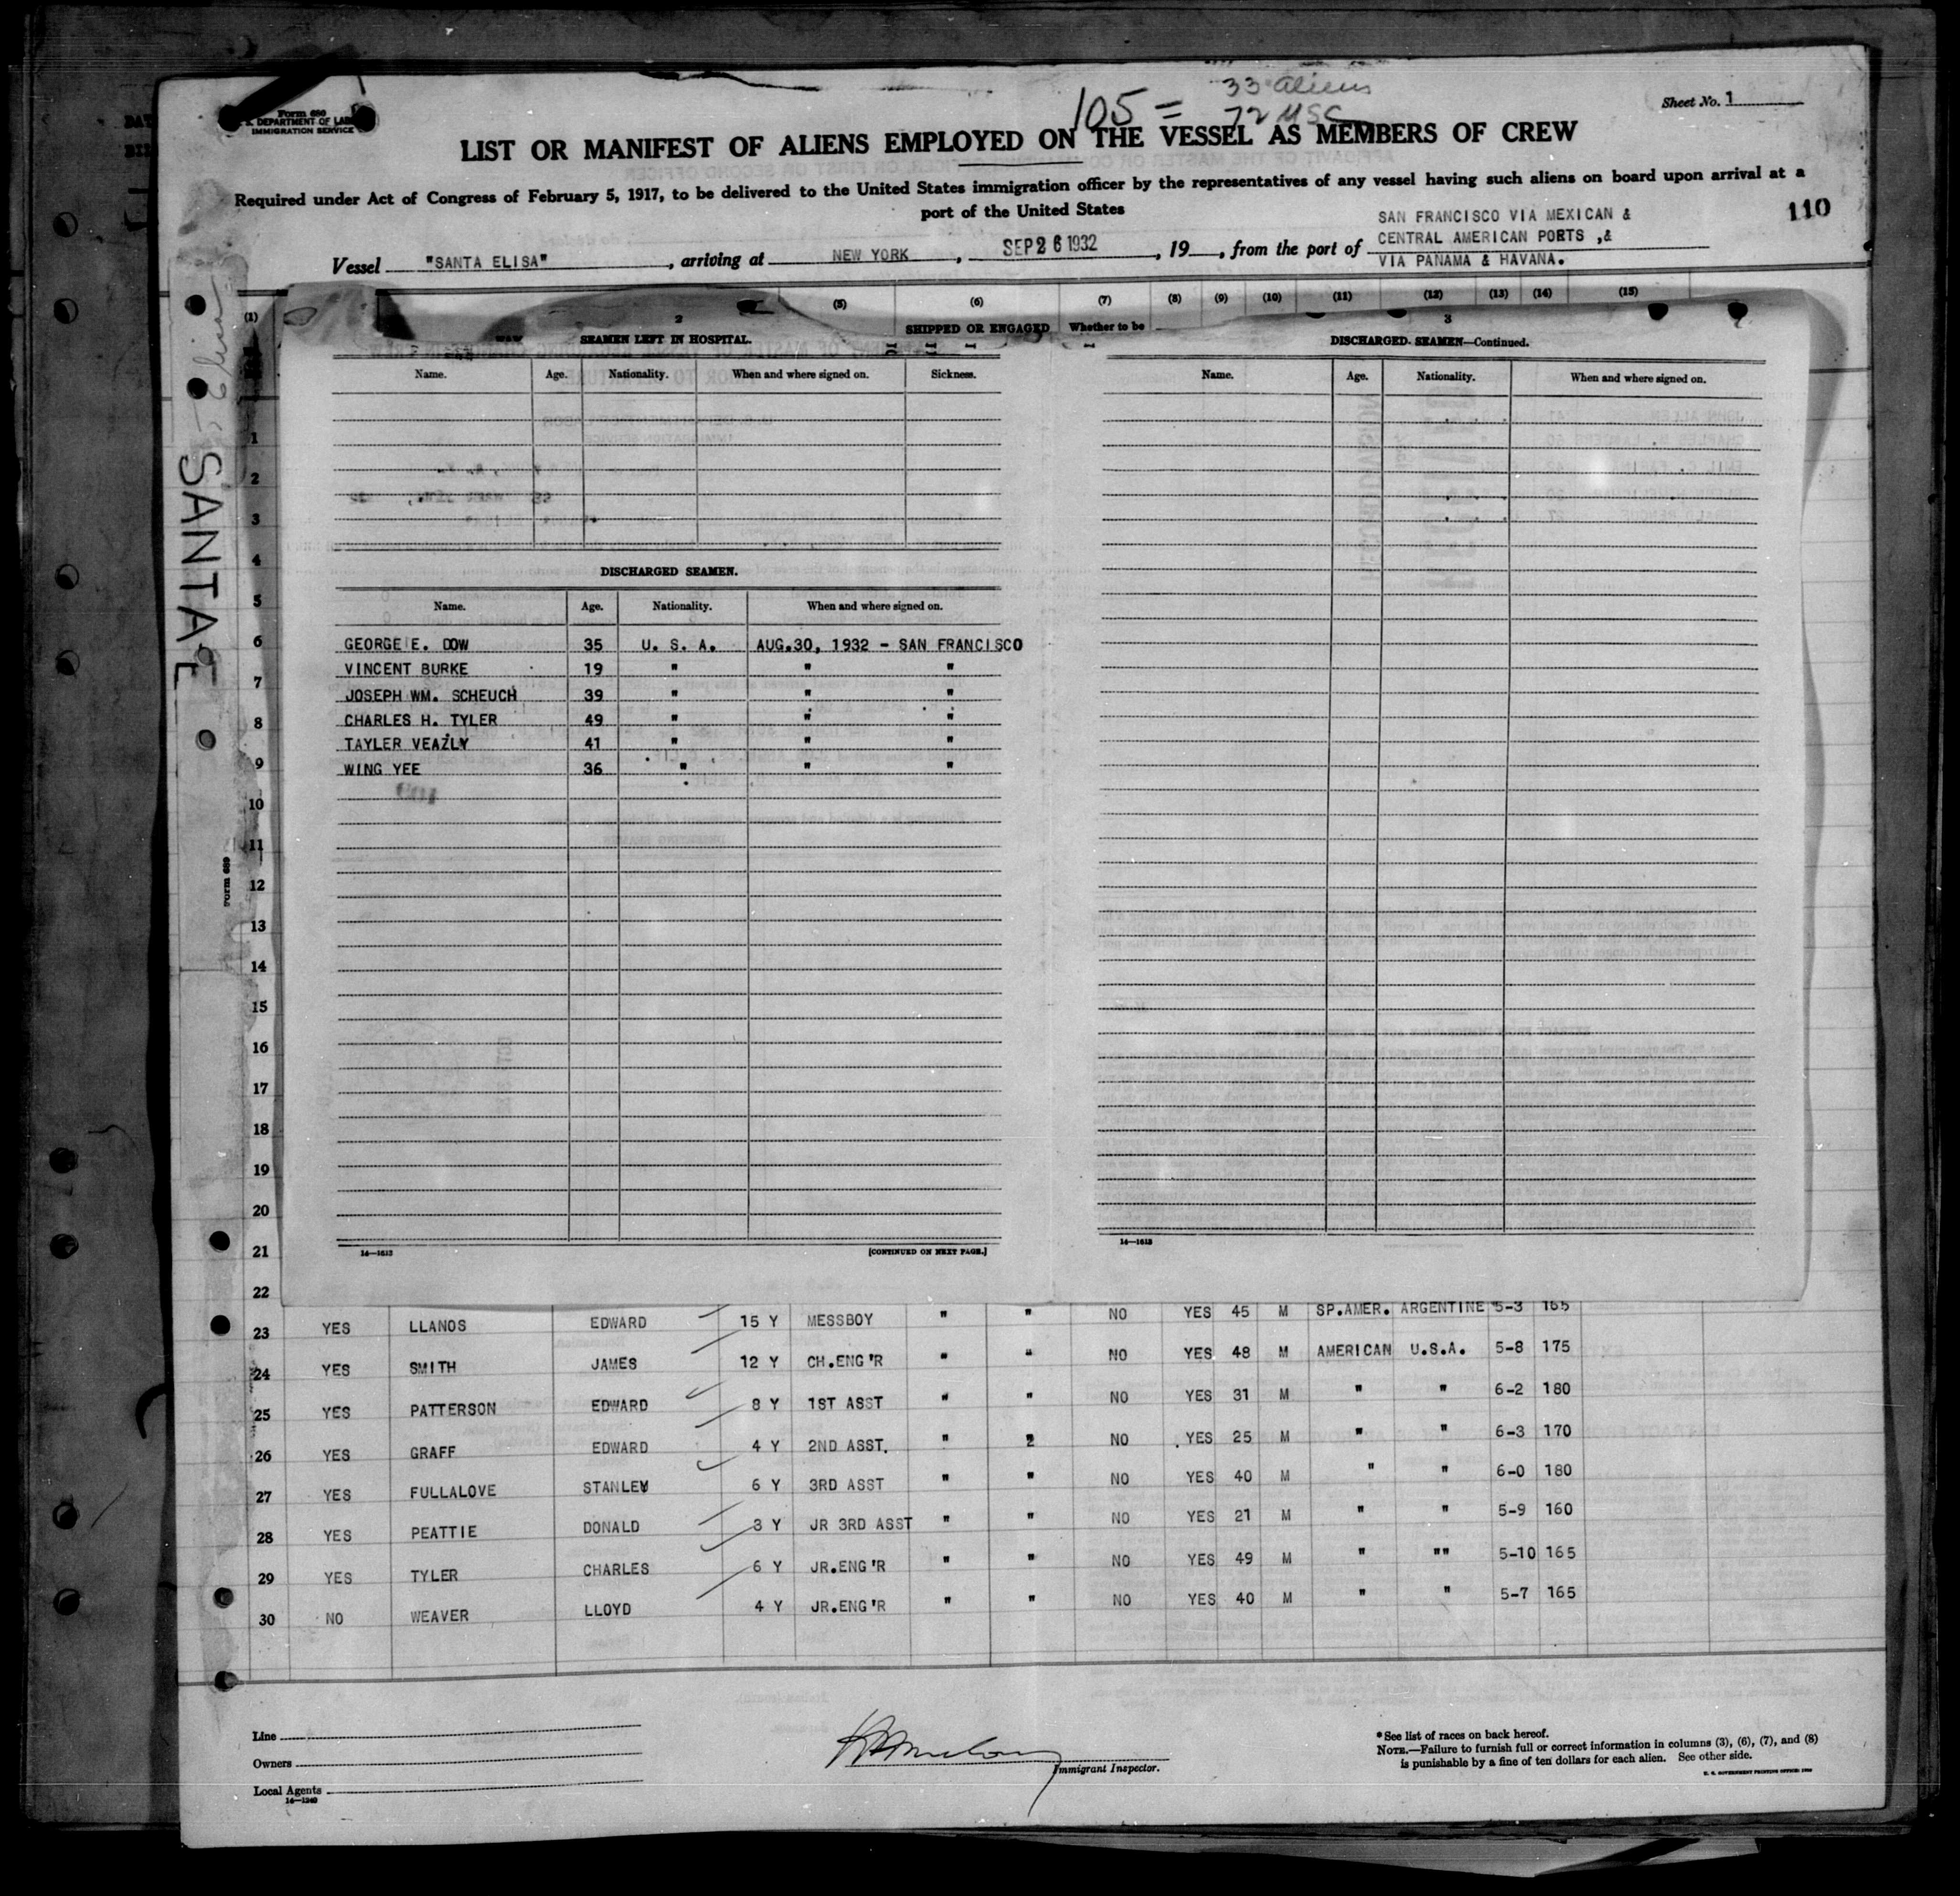 Form 680
DEPARTMENT OF LABOR
IMMIGRATION SERVICE
105 = 33 aliens
72 USC
Sheet No. 1
LIST OR MANIFEST OF ALIENS EMPLOYED ON THE VESSEL AS MEMBERS OF CREW
Required under Act of Congress of February 5, 1917, to be delivered to the United States immigration officer by the representatives of any vessel having such aliens on board upon arrival at a
port of the United States
110
SAN FRANCISCO VIA MEXICAN &
CENTRAL AMERICAN PORTS ,&
VIA PANAMA & HAVANA.
Vessel "SANTA ELISA" , arriving at NEW YORK , SEP 26 1932 , 19 , from the port of
(1) (5) (6) (7) (8) (9) (10) (11) (12) (13) (14) (15)
SHIPPED OR ENGAGED Whether to be
SANTA E
Form 689
2
SEAMEN LEFT IN HOSPITAL.
Name. Age. Nationality. When and where signed on. Sickness.
DISCHARGED SEAMEN.
Name. Age. Nationality. When and where signed on.
GEORGE E. DOW 35 U. S. A. AUG.30, 1932 - SAN FRANCISCO
VINCENT BURKE 19 " " "
JOSEPH WM. SCHEUCH 39 " " "
CHARLES H. TYLER 49 " " "
TAYLER VEAZLY 41 " " "
WING YEE 36 " " "
14—1613 [CONTINUED ON NEXT PAGE.]
3
DISCHARGED SEAMEN—Continued.
Name. Age. Nationality. When and where signed on.
14—1613
1
2
3
4
5
6
7
8
9
10
11
12
13
14
15
16
17
18
19
20
21
22
23 YES LLANOS EDWARD 15 Y MESSBOY " " NO YES 45 M SP.AMER. ARGENTINE 5-3 165
24 YES SMITH JAMES 12 Y CH.ENG'R " " NO YES 48 M AMERICAN U.S.A. 5-8 175
25 YES PATTERSON EDWARD 8 Y 1ST ASST " " NO YES 31 M " " 6-2 180
26 YES GRAFF EDWARD 4 Y 2ND ASST. " " NO YES 25 M " " 6-3 170
27 YES FULLALOVE STANLEY 6 Y 3RD ASST " " NO YES 40 M " " 6-0 180
28 YES PEATTIE DONALD 3 Y JR 3RD ASST " " NO YES 21 M " " 5-9 160
29 YES TYLER CHARLES 6 Y JR.ENG'R " " NO YES 49 M " "" 5-10 165
30 NO WEAVER LLOYD 4 Y JR.ENG'R " " NO YES 40 M " " 5-7 165
Line
Owners
Local Agents
14—1240
Immigrant Inspector.
*See list of races on back hereof.
NOTE.—Failure to furnish full or correct information in columns (3), (6), (7), and (8)
is punishable by a fine of ten dollars for each alien. See other side.
U. S. GOVERNMENT PRINTING OFFICE: